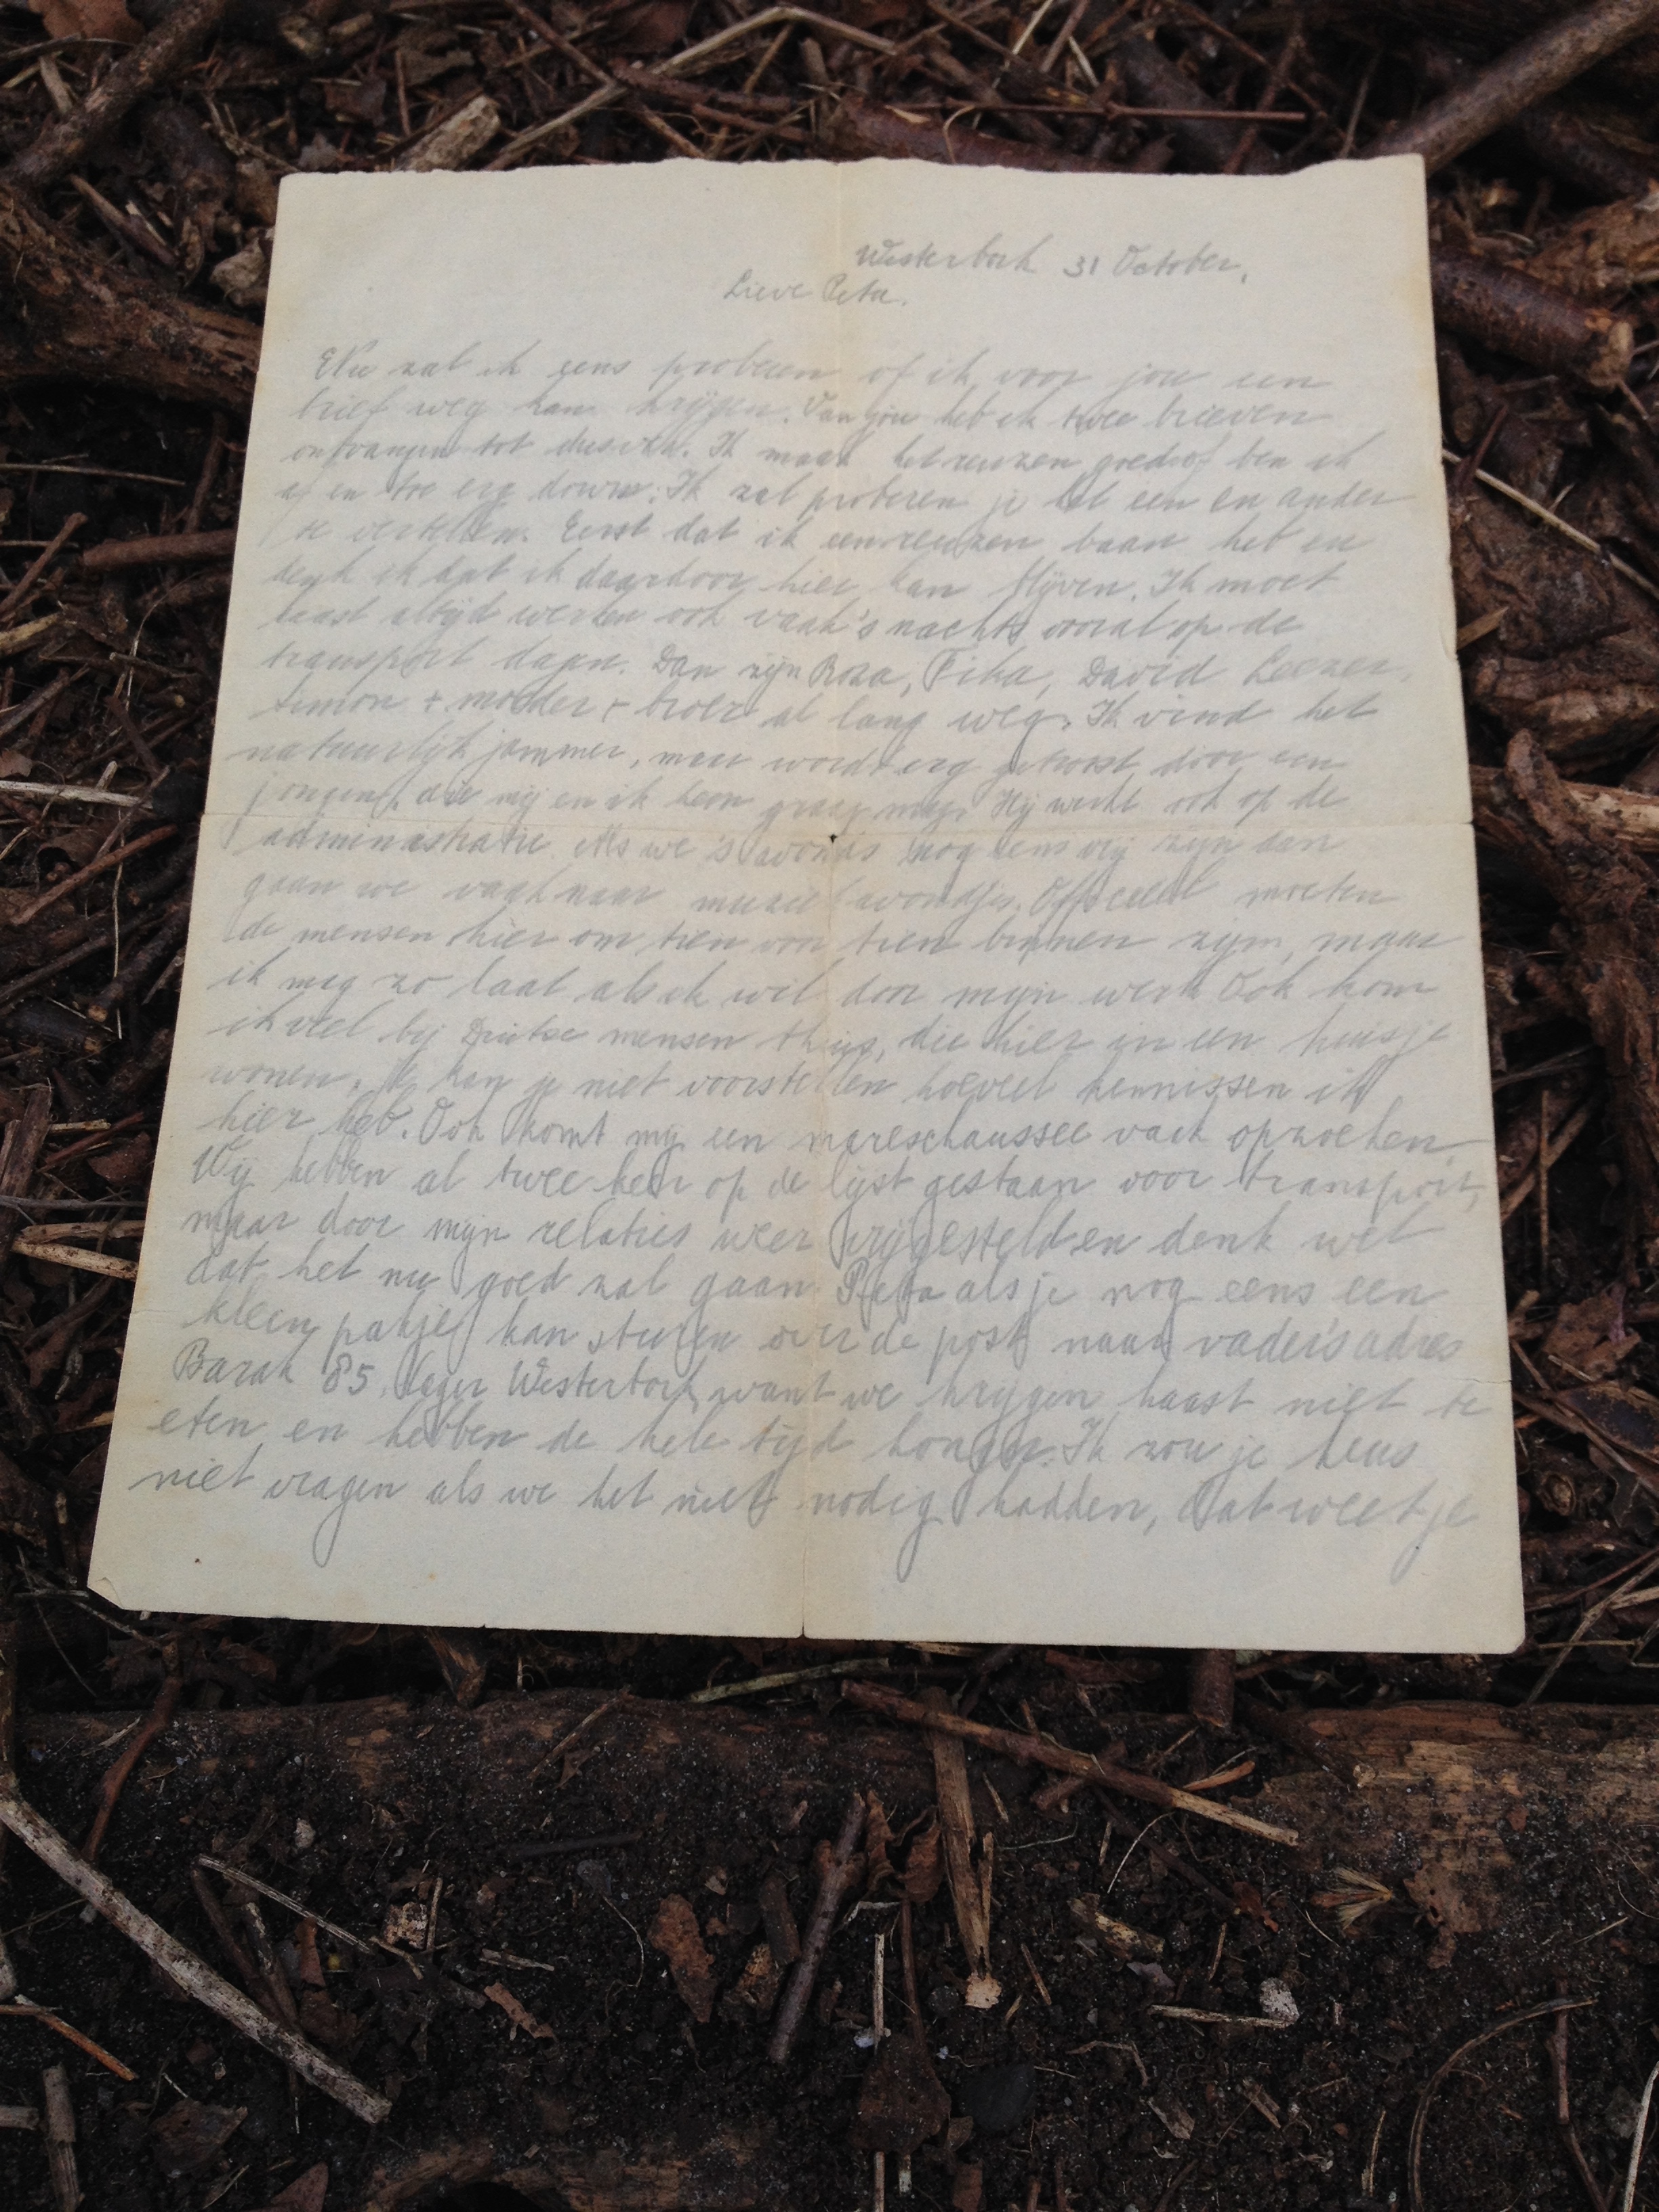 Westerbork 31 October,
Lieve Peta.
Nu zal ik eens proberen of ik voor jou een
brief weg kan krijgen. Van jou heb ik twee brieven
ontvangen tot dusver. Ik maak het reuzen goed of ben ik
af en toe erg down. Ik zal proberen je het een en ander
te vertellen. Eerst dat ik een reuzen baan heb en
denk ik dat ik daardoor hier kan blijven. Ik moet
haast altijd werken ook vaak 's nachts vooral op de
transport dagen. Dan zijn Roza, Fika, David Leezer,
Simon + moeder + broer al lang weg. Ik vind het
natuurlijk jammer, maar word erg getroost door een
jongen, die mij en ik hem graag mag. Hij werkt ook op de
administratie. Als we 's avonds nog eens vrij zijn dan
gaan we vaak naar muziekavondje. Officieel moeten
de mensen hier om tien voor tien binnen zijn, maar
ik mag zo laat als ik wil door mijn werk. Ook kom
ik veel bij Duitse mensen thuis, die hier in een huisje
wonen. Ik kan je niet voorstellen hoeveel kennissen ik
hier heb. Ook komt mij een mareschaussee vaak opzoeken.
Wij hebben al twee keer op de lijst gestaan voor transport,
maar door mijn relaties weer vrijgesteld en denk wel
dat het nu goed zal gaan. Peta als je nog eens een
klein pakje kan sturen over de post naar vader's adres
Barak 85. Lager Westerbork, want we krijgen haast niet te
eten en hebben de hele tijd honger. Ik zou je heus
niet vragen als we het niet nodig hadden, dat weet je